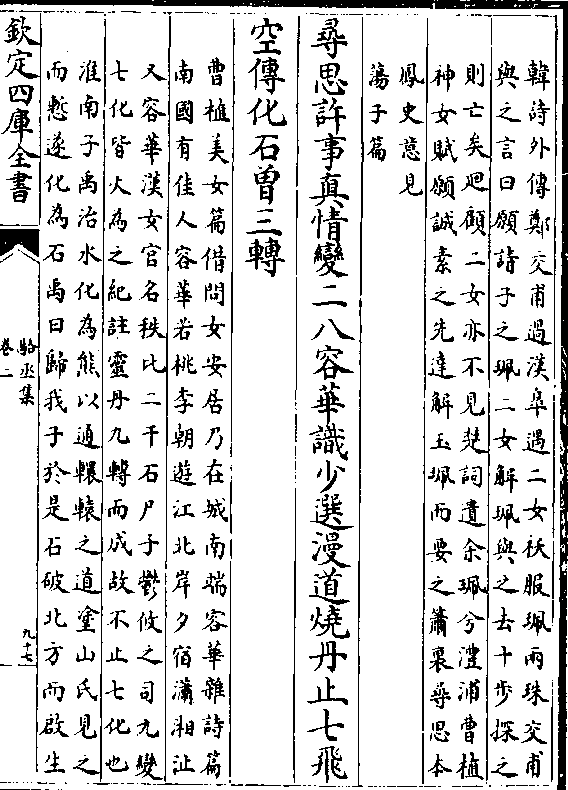 韓詩外傳鄭交甫過漢臯遇二女袄服珮兩珠交甫
與之言曰願請子之珮二女解珮與之去十步探之
則亡矣迴顧二女亦不見楚詞遺余珮兮澧浦曹植
神女賦願誠素之先達解玉珮而要之蕭裛尋思本
鳳史意見
蕩子篇
尋思許事真情變二八容華識少選漫道燒丹止七飛
空傳化石曽三轉
曹植美女篇借問女安居乃在城南端容華雜詩篇
南國有佳人容華若桃李朝遊江北岸夕宿瀟湘沚
又容華漢女官名秩比二千石尸子鬱攸之司九變
七化皆火為之紀註靈丹九轉而成故不止七化也
淮南子禹治水化為熊以通轘轅之道塗山氏見之
而慙遂化為石禹曰歸我子於是石破北方而啟生
欽定四庫全書
駱丞集
卷二
九十七